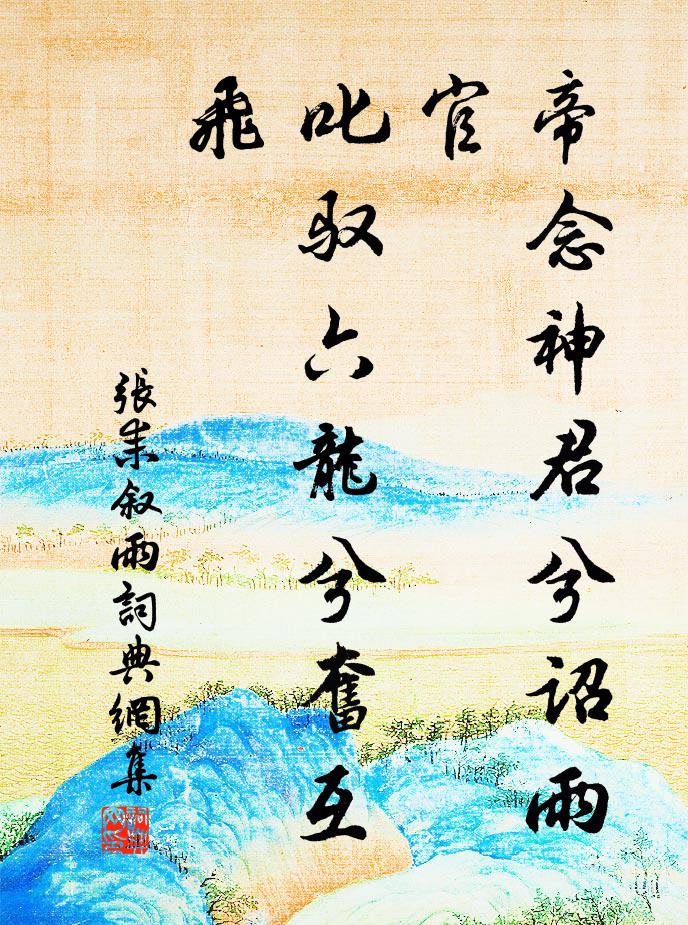 帝念神君兮诏雨
官
叱驭六龍兮奮互
飛
張耒叙雨詞典網集